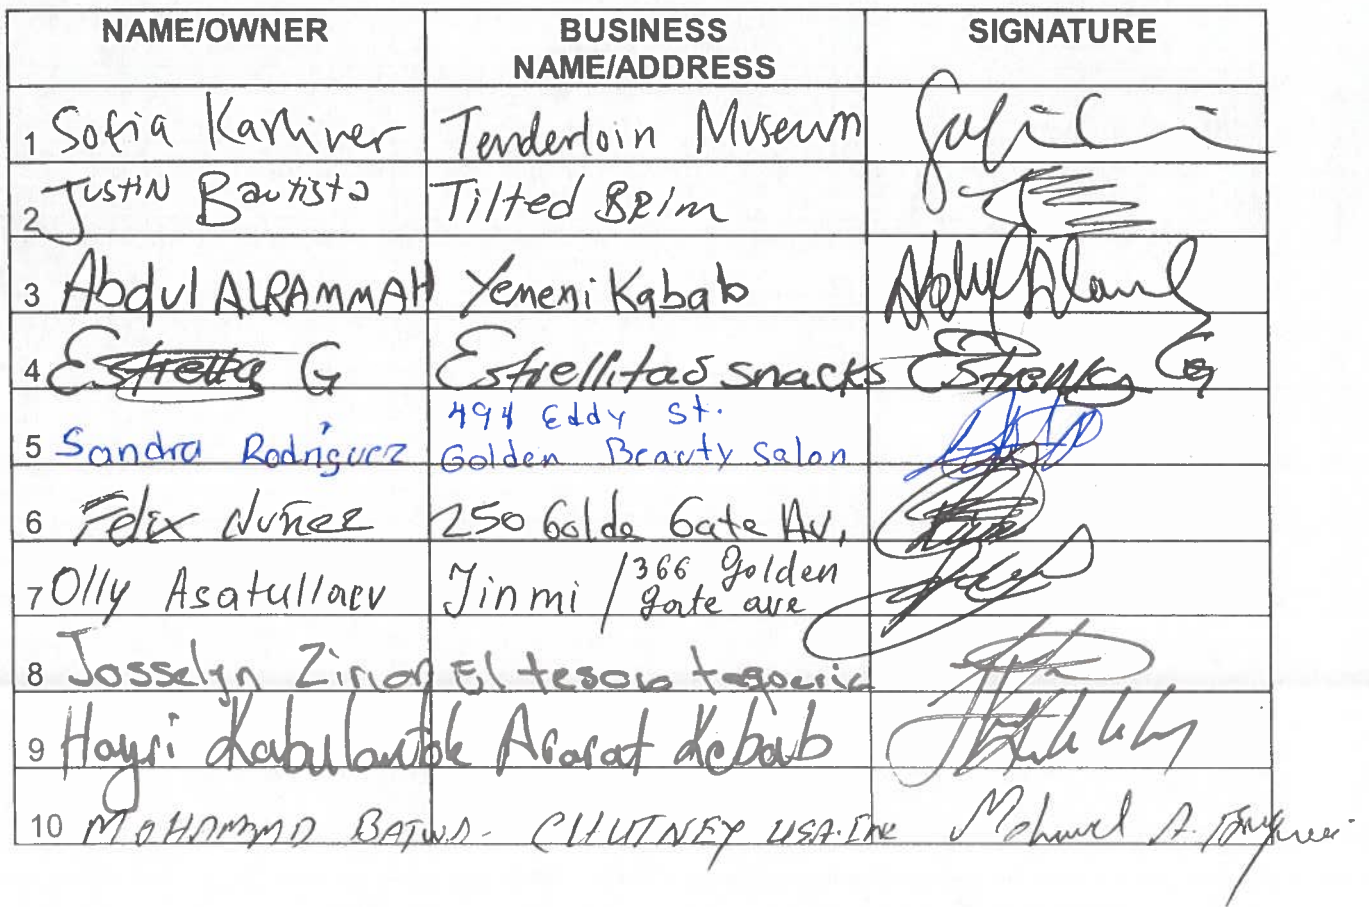 NAME/OWNER BUSINESS NAME/ADDRESS SIGNATURE
1 Sofia Karliner Tenderloin Museum
2 Justin Bautista Tilted BRIM
3 Abdul ALRAMMAH Yemeni Kabab
4 Estrella G Estrellitas snacks Estrella G
494 Eddy St.
5 Sandra Rodríguez Golden Beauty Salon
6 Felix Nuñez 250 Golde Gate Av.
7 Olly Asatullaev Jinmi / 366 golden gate ave
8 Josselyn El tesoro taqueria
9 Hayri Ararat Kebab
10 MOHAMMAD CHUTNEY USA. Inc